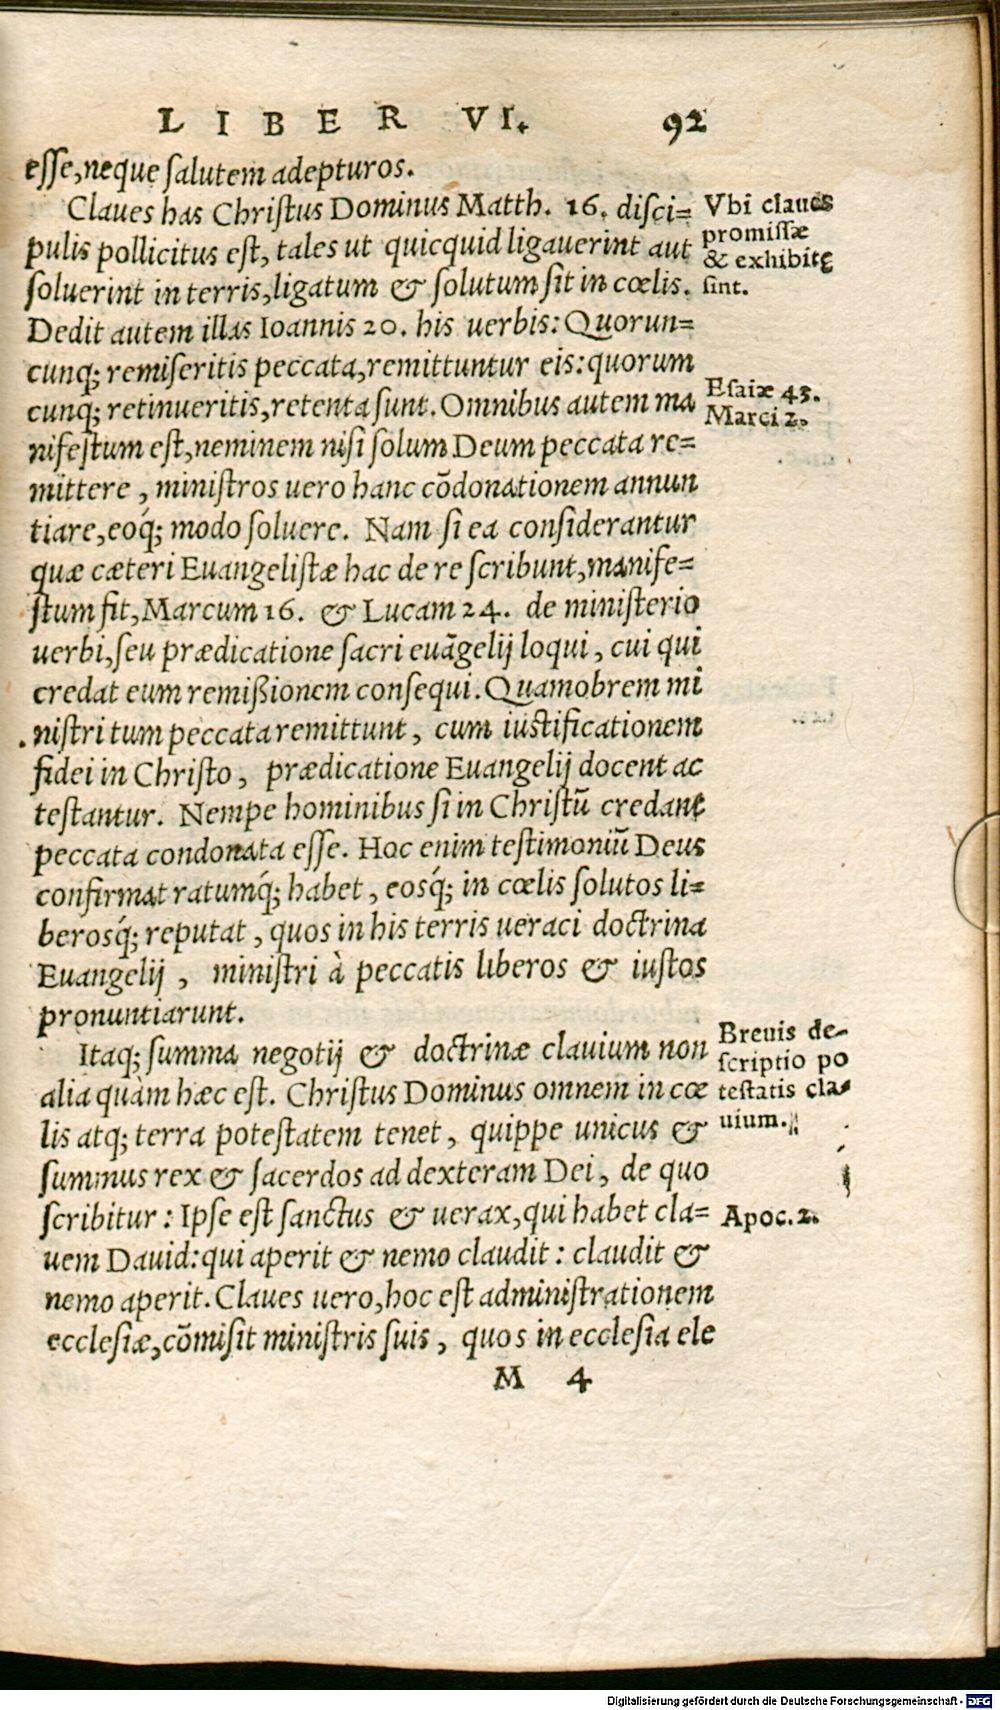 LIBER VI. 92
esse, neque salutem adepturos.
Claues has Christus Dominus Matth. 16. disci=
pulis pollicitus est, tales ut quicquid ligauerint aut
soluerint in terris, ligatum & solutum sit in cœlis.
Dedit autem illas Ioannis 20. his uerbis: Quorun=
cunq; remiseritis peccata, remittuntur eis: quorum
cunq; retinueritis, retenta sunt. Omnibus autem ma
nifestum est, neminem nisi solum Deum peccata re=
mittere, ministros uero hanc cõdonationem annun
tiare, eoq́; modo soluere. Nam si ea considerantur
quæ cæteri Euangelistæ hac de re scribunt, manife=
stum fit, Marcum 16. & Lucam 24. de ministerio
uerbi, seu prædicatione sacri euãgelij loqui, cui qui
credat eum remißionem consequi. Quamobrem mi
nistri tum peccata remittunt, cum iustificationem
fidei in Christo, prædicatione Euangelij docent ac
testantur. Nempe hominibus si in Christũ credant
peccata condonata esse. Hoc enim testimoniũ Deus
confirmat ratumq́; habet, eosq́; in cœlis solutos li=
berosq́; reputat, quos in his terris ueraci doctrina
Euangelij, ministri à peccatis liberos & iustos
pronuntiarunt.
Itaq; summa negotij & doctrinæ clauium non
alia quàm hæc est. Christus Dominus omnem in cœ
lis atq; terra potestatem tenet, quippe unicus &
summus rex & sacerdos ad dexteram Dei, de quo
scribitur: Ipse est sanctus & uerax, qui habet cla=
uem Dauid: qui aperit & nemo claudit: claudit &
nemo aperit. Claues uero, hoc est administrationem
ecclesiæ, cõmisit ministris suis, quos in ecclesia ele
M 4
Vbi claues
promissæ
& exhibitę
sint.
Esaiæ 43.
Marci 2.
Breuis de-
scriptio po
testatis cla-
uium.
Apoc. 2.
Digitalisierung gefördert durch die Deutsche Forschungsgemeinschaft - DFG